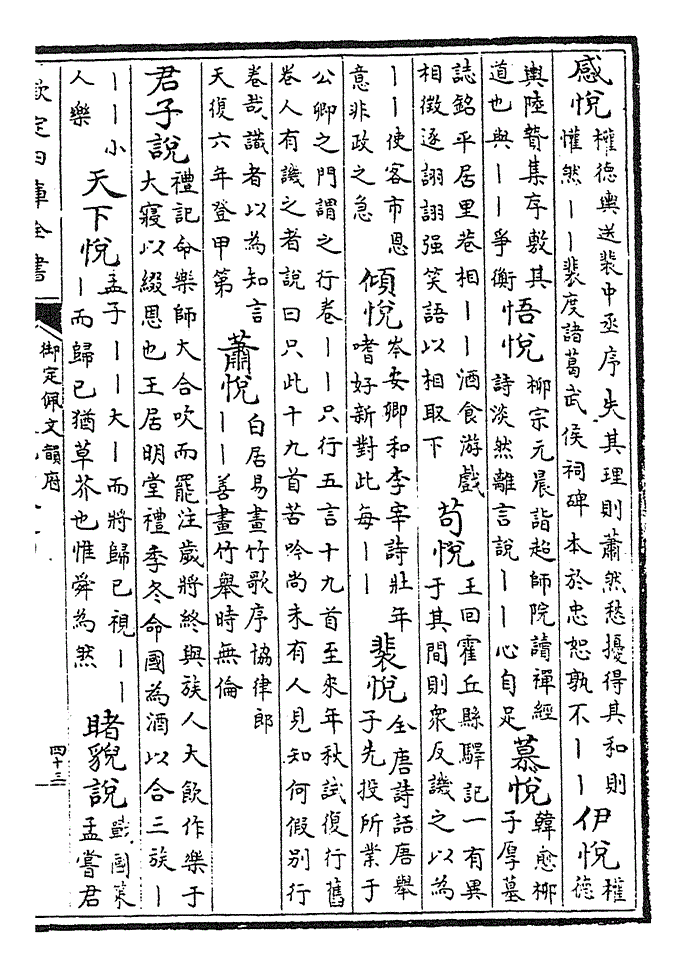 感悅
權德輿送裴中丞序失其理則蕭然愁擾得其和則
懽然丨丨裴度諸葛武侯祠碑本於忠恕孰不丨丨
伊悅
權
德
輿陸贄集序敷其
道也與丨丨爭衡
悟悅
柳宗元晨詣超師院讀禪經
詩淡然離言說丨丨心自足
慕悅
韓愈柳
子厚墓
誌銘平居里巷相丨丨酒食游戲
相徵逐詡詡强笑語以相取下
苟悅
王回霍丘縣驛記一有異
于其間則衆反譏之以為
丨丨使客市恩
意非政之急
傾悅
岑安卿和李宰詩壯年
嗜好新對此每丨丨
裴悅
全唐詩話唐舉
子先投所業于
公卿之門謂之行卷丨丨只行五言十九首至來年秋試復行舊
卷人有譏之者說曰只此十九首苦吟尚未有人見知何假別行
卷哉識者以為知言
天復六年登甲第
蕭悅
白居易畫竹歌序協律郎
丨丨善畫竹舉時無倫
君子說
禮記命樂師大合吹而罷注歲將終與族人大飲作樂于
大寢以綴恩也王居明堂禮季冬命國為酒以合三族丨
丨丨小
人樂
天下悅
孟子丨丨大丨而將歸已視丨丨
丨而歸已猶草芥也惟舜為然
睹貌說
戰國策
孟嘗君
欽定四庫全書
御定佩文韻府
四十三